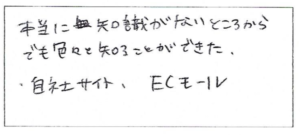 本当に知識がないところから
でも色々と知ることができた。
・自社サイト、ECモール